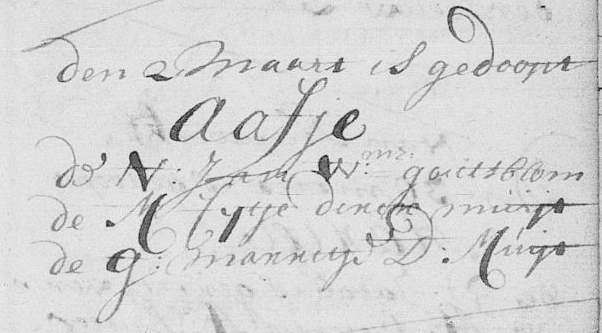 den 2 Maart is gedoopt
Aafje
de V: Jan Wmz: goutsblom
de M Tytje dirck muijs
de g: Marretje D: Muijs